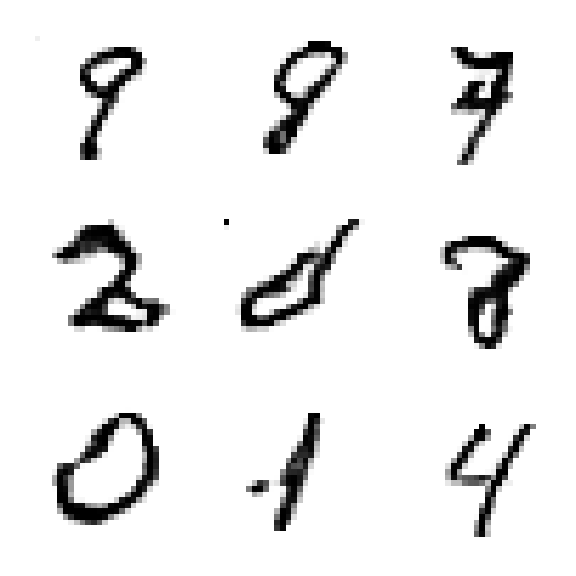 9 8 7
2 8
0 1 4